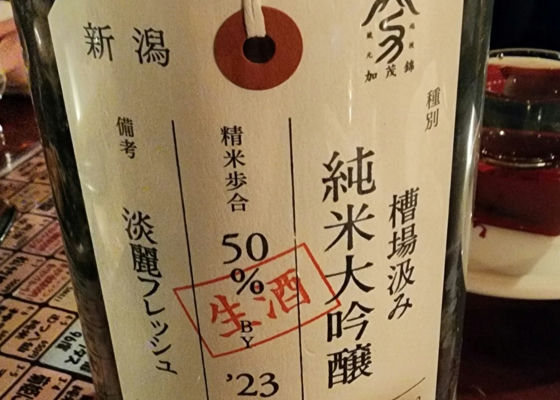 新潟
越後
蔵元
加茂錦
種別
槽場汲み
純米大吟醸
精米歩合
50
%
BY
'23
生酒
備考
淡麗フレッシュ